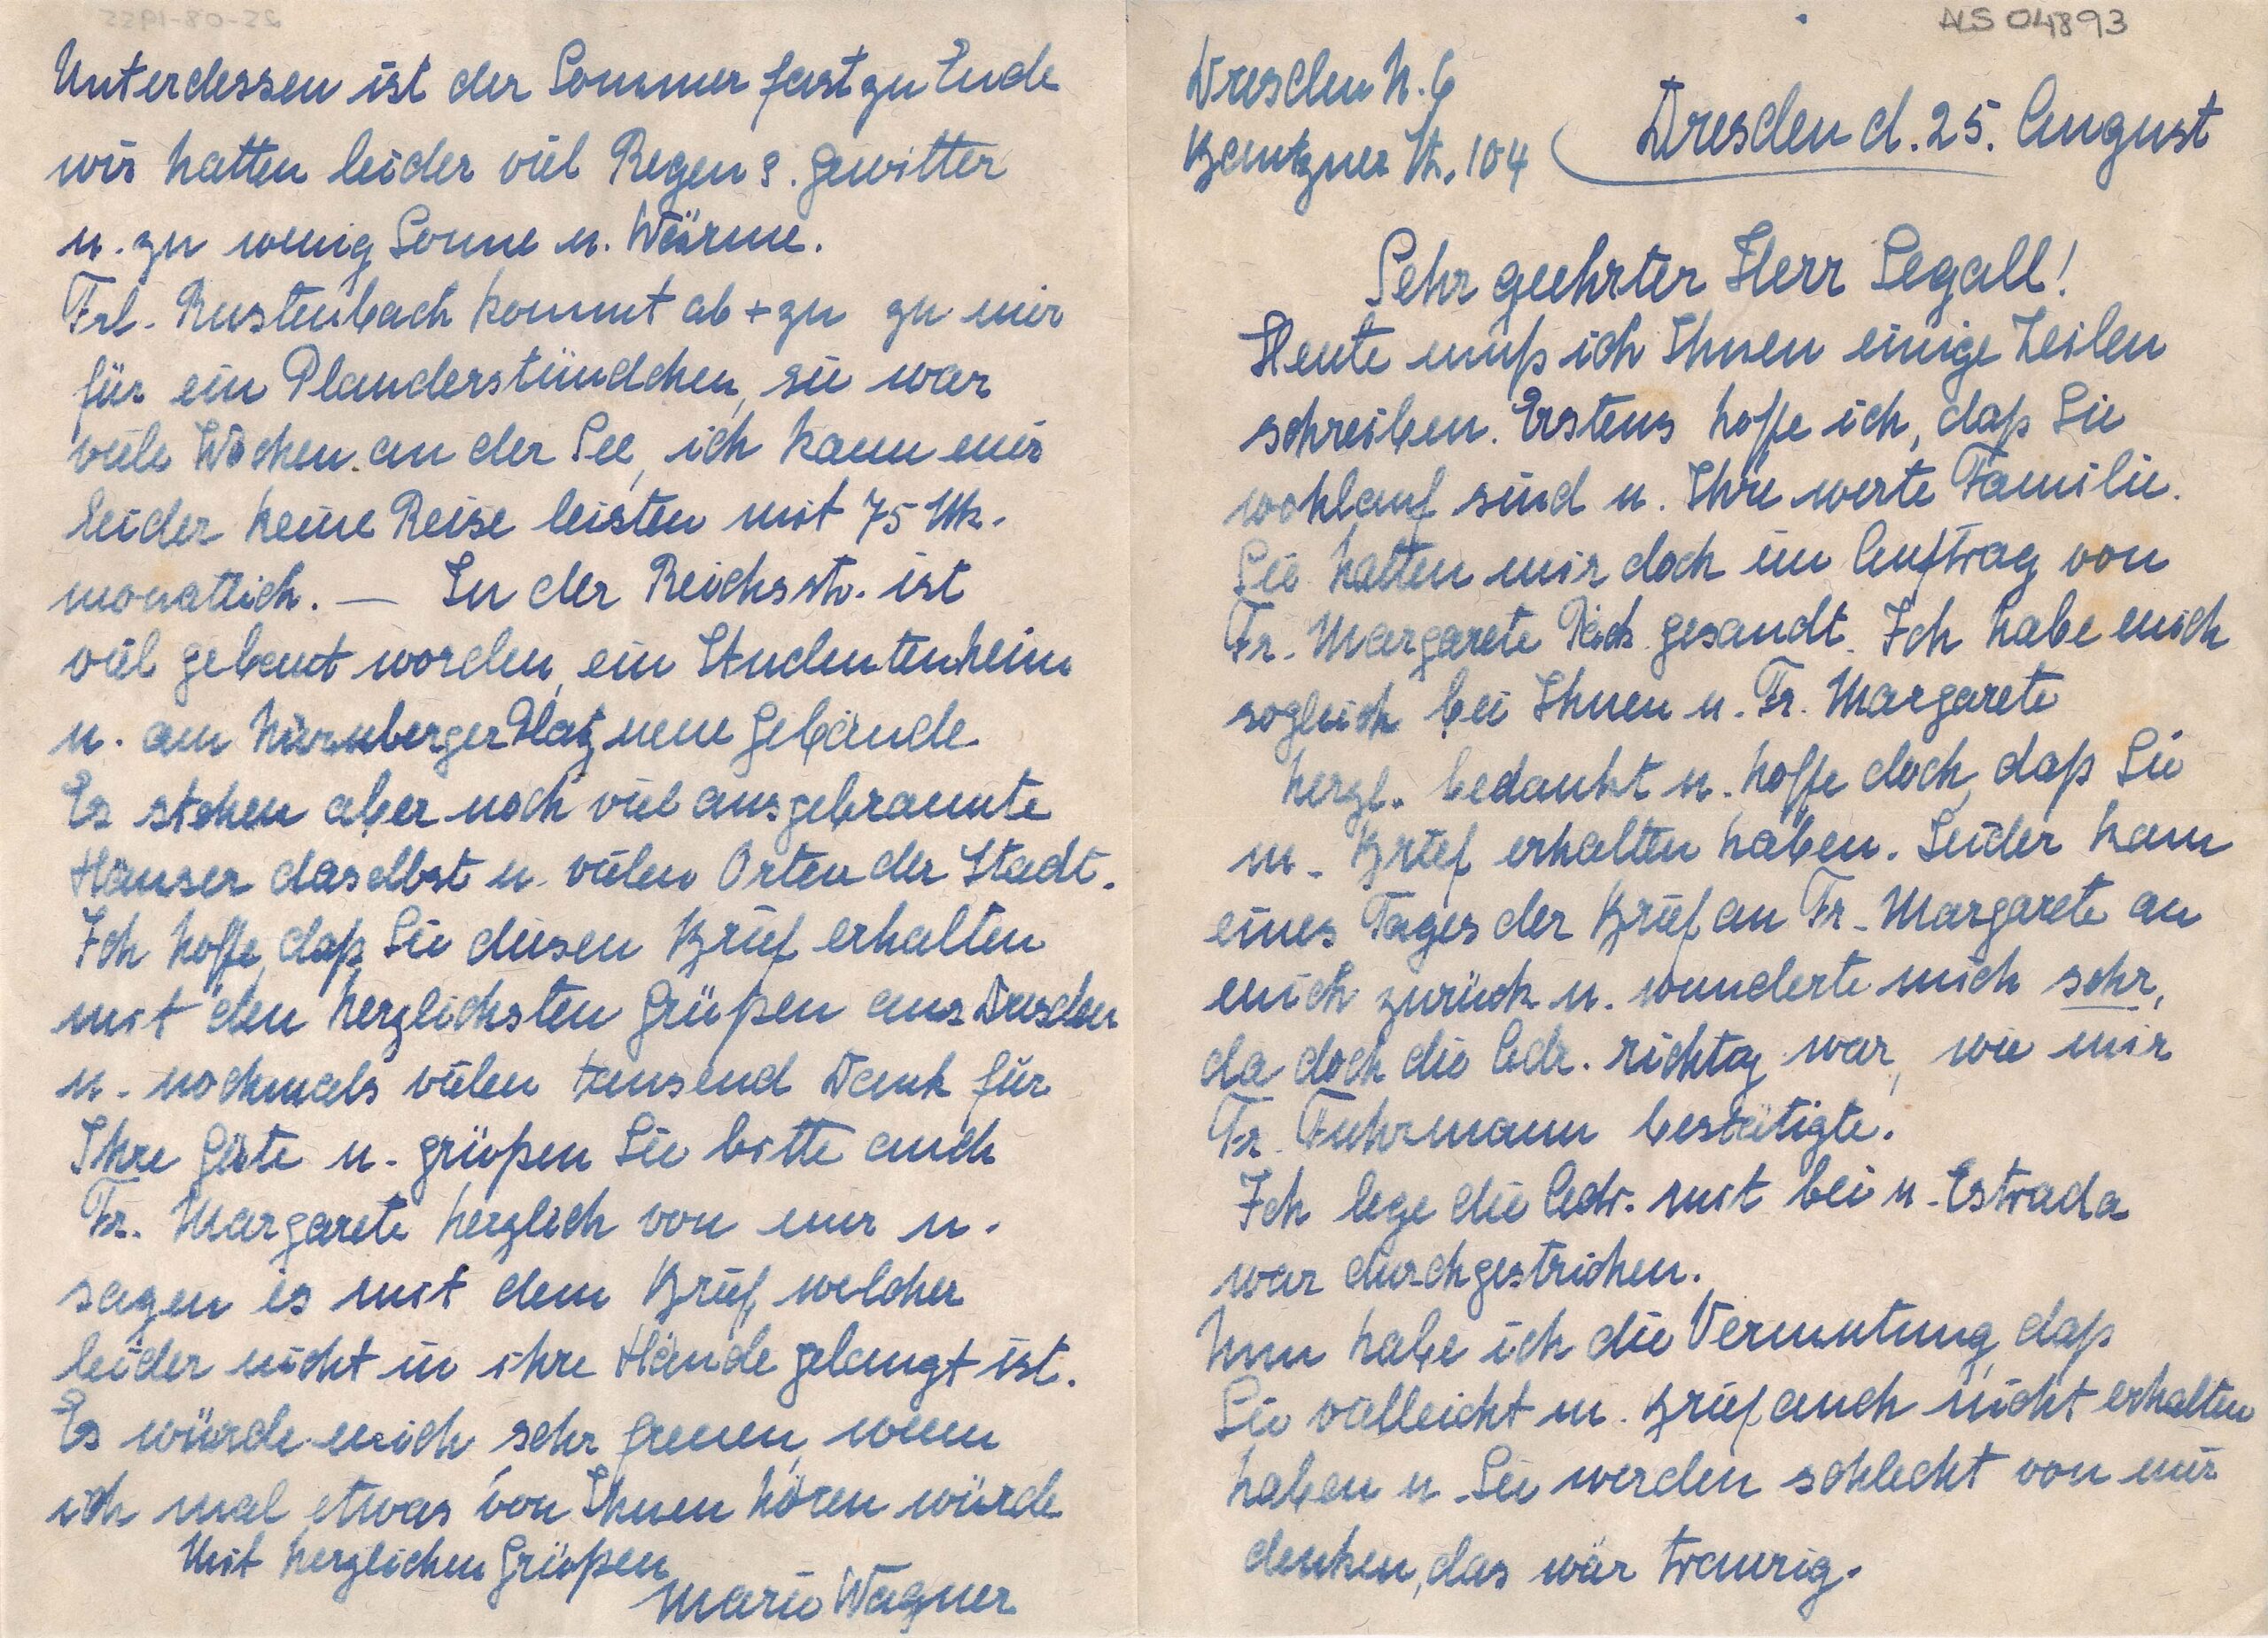 ALS 04893
Dresden N. 6
Bautzner Str. 104
Dresden d. 25. August
Sehr geehrter Herr Segall!
Heute muß ich Ihnen einige Zeilen
schreiben. Erstens hoffe ich, daß Sie
wohlauf sind u. Ihre werte Familie.
Sie hatten mir doch im Auftrag von
Fr. Margarete Päck. gesandt. Ich habe mich
sogleich bei Ihnen u. Fr. Margarete
herzl. bedankt u. hoffe doch, daß Sie
m. Brief erhalten haben. Leider kam
eines Tages der Brief an Fr. Margarete an
mich zurück u. wunderte mich sehr,
da doch die Adr. richtig war, wie mir
Fr. Fuhrmann bestätigte.
Ich lege die Adr. mit bei u. Estrada
war durchgestrichen.
Nun habe ich die Vermutung, daß
Sie vielleicht m. Brief auch nicht erhalten
haben u. Sie werden schlecht von mir
denken, das wär traurig.
Unterdessen ist der Sommer fast zu Ende
wir hatten leider viel Regen u. Gewitter
u. zu wenig Sonne u. Wärme.
Frl. Rustenbach kommt ab + zu zu mir
für ein Plauderstündchen, sie war
viele Wochen an der See, ich kann mir
leider keine Reise leisten mit 75 Mk.
monatlich. — In der Reichsstr. ist
viel gebaut worden, ein Studentenheim
u. am Nürnberger Platz neue Gebäude
Es stehen aber noch viel ausgebrannte
Häuser daselbst u. vielen Orten der Stadt.
Ich hoffe, daß Sie diesen Brief erhalten
mit den herzlichsten Grüßen aus Dresden
u. nochmals vielen tausend Dank für
Ihre Güte u. grüßen Sie bitte auch
Fr. Margarete herzlich von mir u.
sagen es mit dem Brief, welcher
leider nicht in ihre Hände gelangt ist.
Es würde mich sehr freuen, wenn
ich mal etwas von Ihnen hören würde
Mit herzlichen Grüßen
Marie Wagner